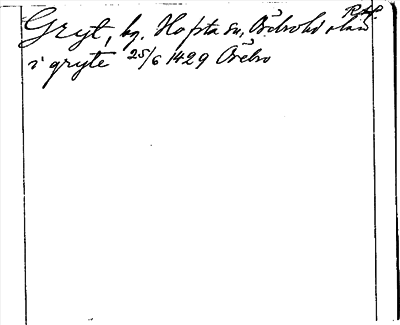 Rap.
Gryt, by. Hopsta sn, Örebro län
i gryte 25/6 1429 Örebro